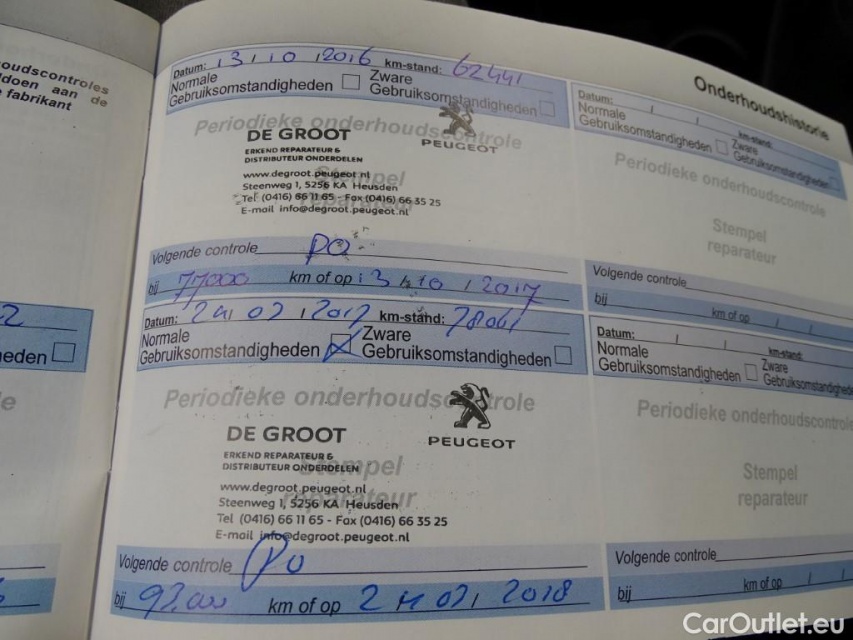 oudscontroles
ldoen aan de
fabrikant
2
eden
Onderhoudshistorie
Datum: 13 / 10 / 2016 km-stand: 62441
Normale
Gebruiksomstandigheden
Zware
Gebruiksomstandigheden
Periodieke onderhoudscontrole
DE GROOT
PEUGEOT
ERKEND REPARATEUR &
DISTRIBUTEUR ONDERDELEN
Stempel
reparateur
www.degroot.peugeot.nl
Steenweg 1, 5256 KA Heusden
Tel (0416) 66 11 65 - Fax (0416) 66 35 25
E-mail info@degroot.peugeot.nl
Volgende controle PO
bij 77000 km of op 13 / 10 / 2017
Datum: 24 / 07 / 2017 km-stand: 78061
Normale
Gebruiksomstandigheden
Zware
Gebruiksomstandigheden
Periodieke onderhoudscontrole
DE GROOT
PEUGEOT
ERKEND REPARATEUR &
DISTRIBUTEUR ONDERDELEN
Stempel
reparateur
www.degroot.peugeot.nl
Steenweg 1, 5256 KA Heusden
Tel (0416) 66 11 65 - Fax (0416) 66 35 25
E-mail info@degroot.peugeot.nl
Volgende controle PO
bij 93000 km of op 24 / 07 / 2018
Datum: / / km-stand:
Normale
Gebruiksomstandigheden
Zware
Gebruiksomstandigheden
Periodieke onderhoudscontrole
Stempel
reparateur
Volgende controle
bij km of op / /
Datum: / / km-stand:
Normale
Gebruiksomstandigheden
Zware
Gebruiksomstandighede
Periodieke onderhoudscontrol
Stempel
reparateur
Volgende controle
bij km of op / /
CarOutlet.eu